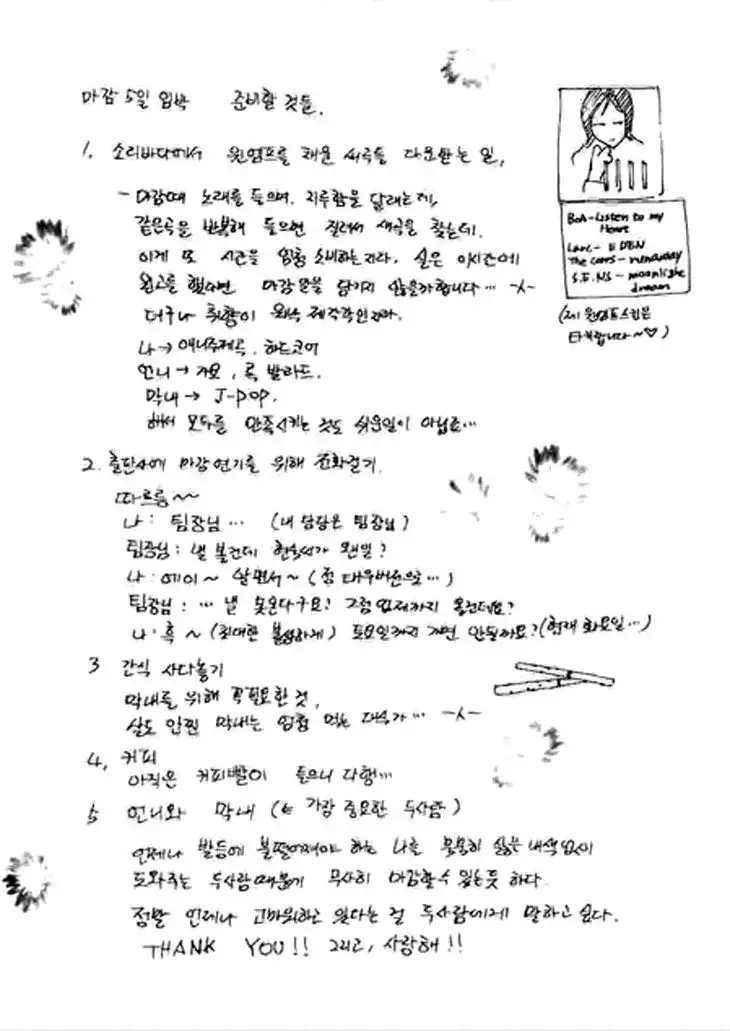 마감 5일 임박 준비할 것들.
1. 소리바다에서 윈엠프를 채운 새곡들 다운받는 일,
- 마감때 노래를 들으며, 지루함을 달래는데,
같은곡을 반복해 들으면 질려서 새곡을 찾는데.
이게 또 시간을 엄청 소비하는지라. 실은 이시간에
원고를 했다면 마감을 넘기지 않을까합니다... ㅡㅅㅡ
더구나 취향이 워낙 제각각인지라.
나 → 애니주제곡, 하드코어
언니 → 가요, 록 발라드.
막내 → J-POP.
해서 모두를 만족시키는 것도 쉬운일이 아닙죠...
2. 출판사에 마감 연기를 위해 전화걸기.
따르릉~~
나: 팀장님... (내 담당은 팀장님)
팀장님: 낼 볼건데 현숙씨가 웬일?
나: 에이~ 살면서~ (점 대우버전으로...)
팀장님: ... 낼 못온다구요? 그럼 언제까지 올건데요?
나: 흑~ (최대한 불쌍하게) 토요일까지 가면 안될까요? (현재 화요일...)
3 간식 사다놓기
막내를 위해 꼭필요한 것,
살도 안찐 막내는 엄청 먹는 대식가... ㅡㅅㅡ
4. 커피
아직은 커피빨이 들으니 다행...
5 언니와 막내 (← 가장 중요한 두사람)
언제나 발등에 불떨어져야 하는 나를 묵묵히 싫은 내색없이
도와주는 두사람때문에 무사히 마감할수 있는듯 하다.
정말 언제나 고마워하고 있다는 걸 두사람에게 말하고 싶다.
THANK YOU!! 그리고, 사랑해!!
BoA-Listen to my
Heart
Larc- EDEN
The corrs - runaway
S.E.NS - moonlight
dream
(저기 윈엠프스킨은
타쿠랍니다~♡)